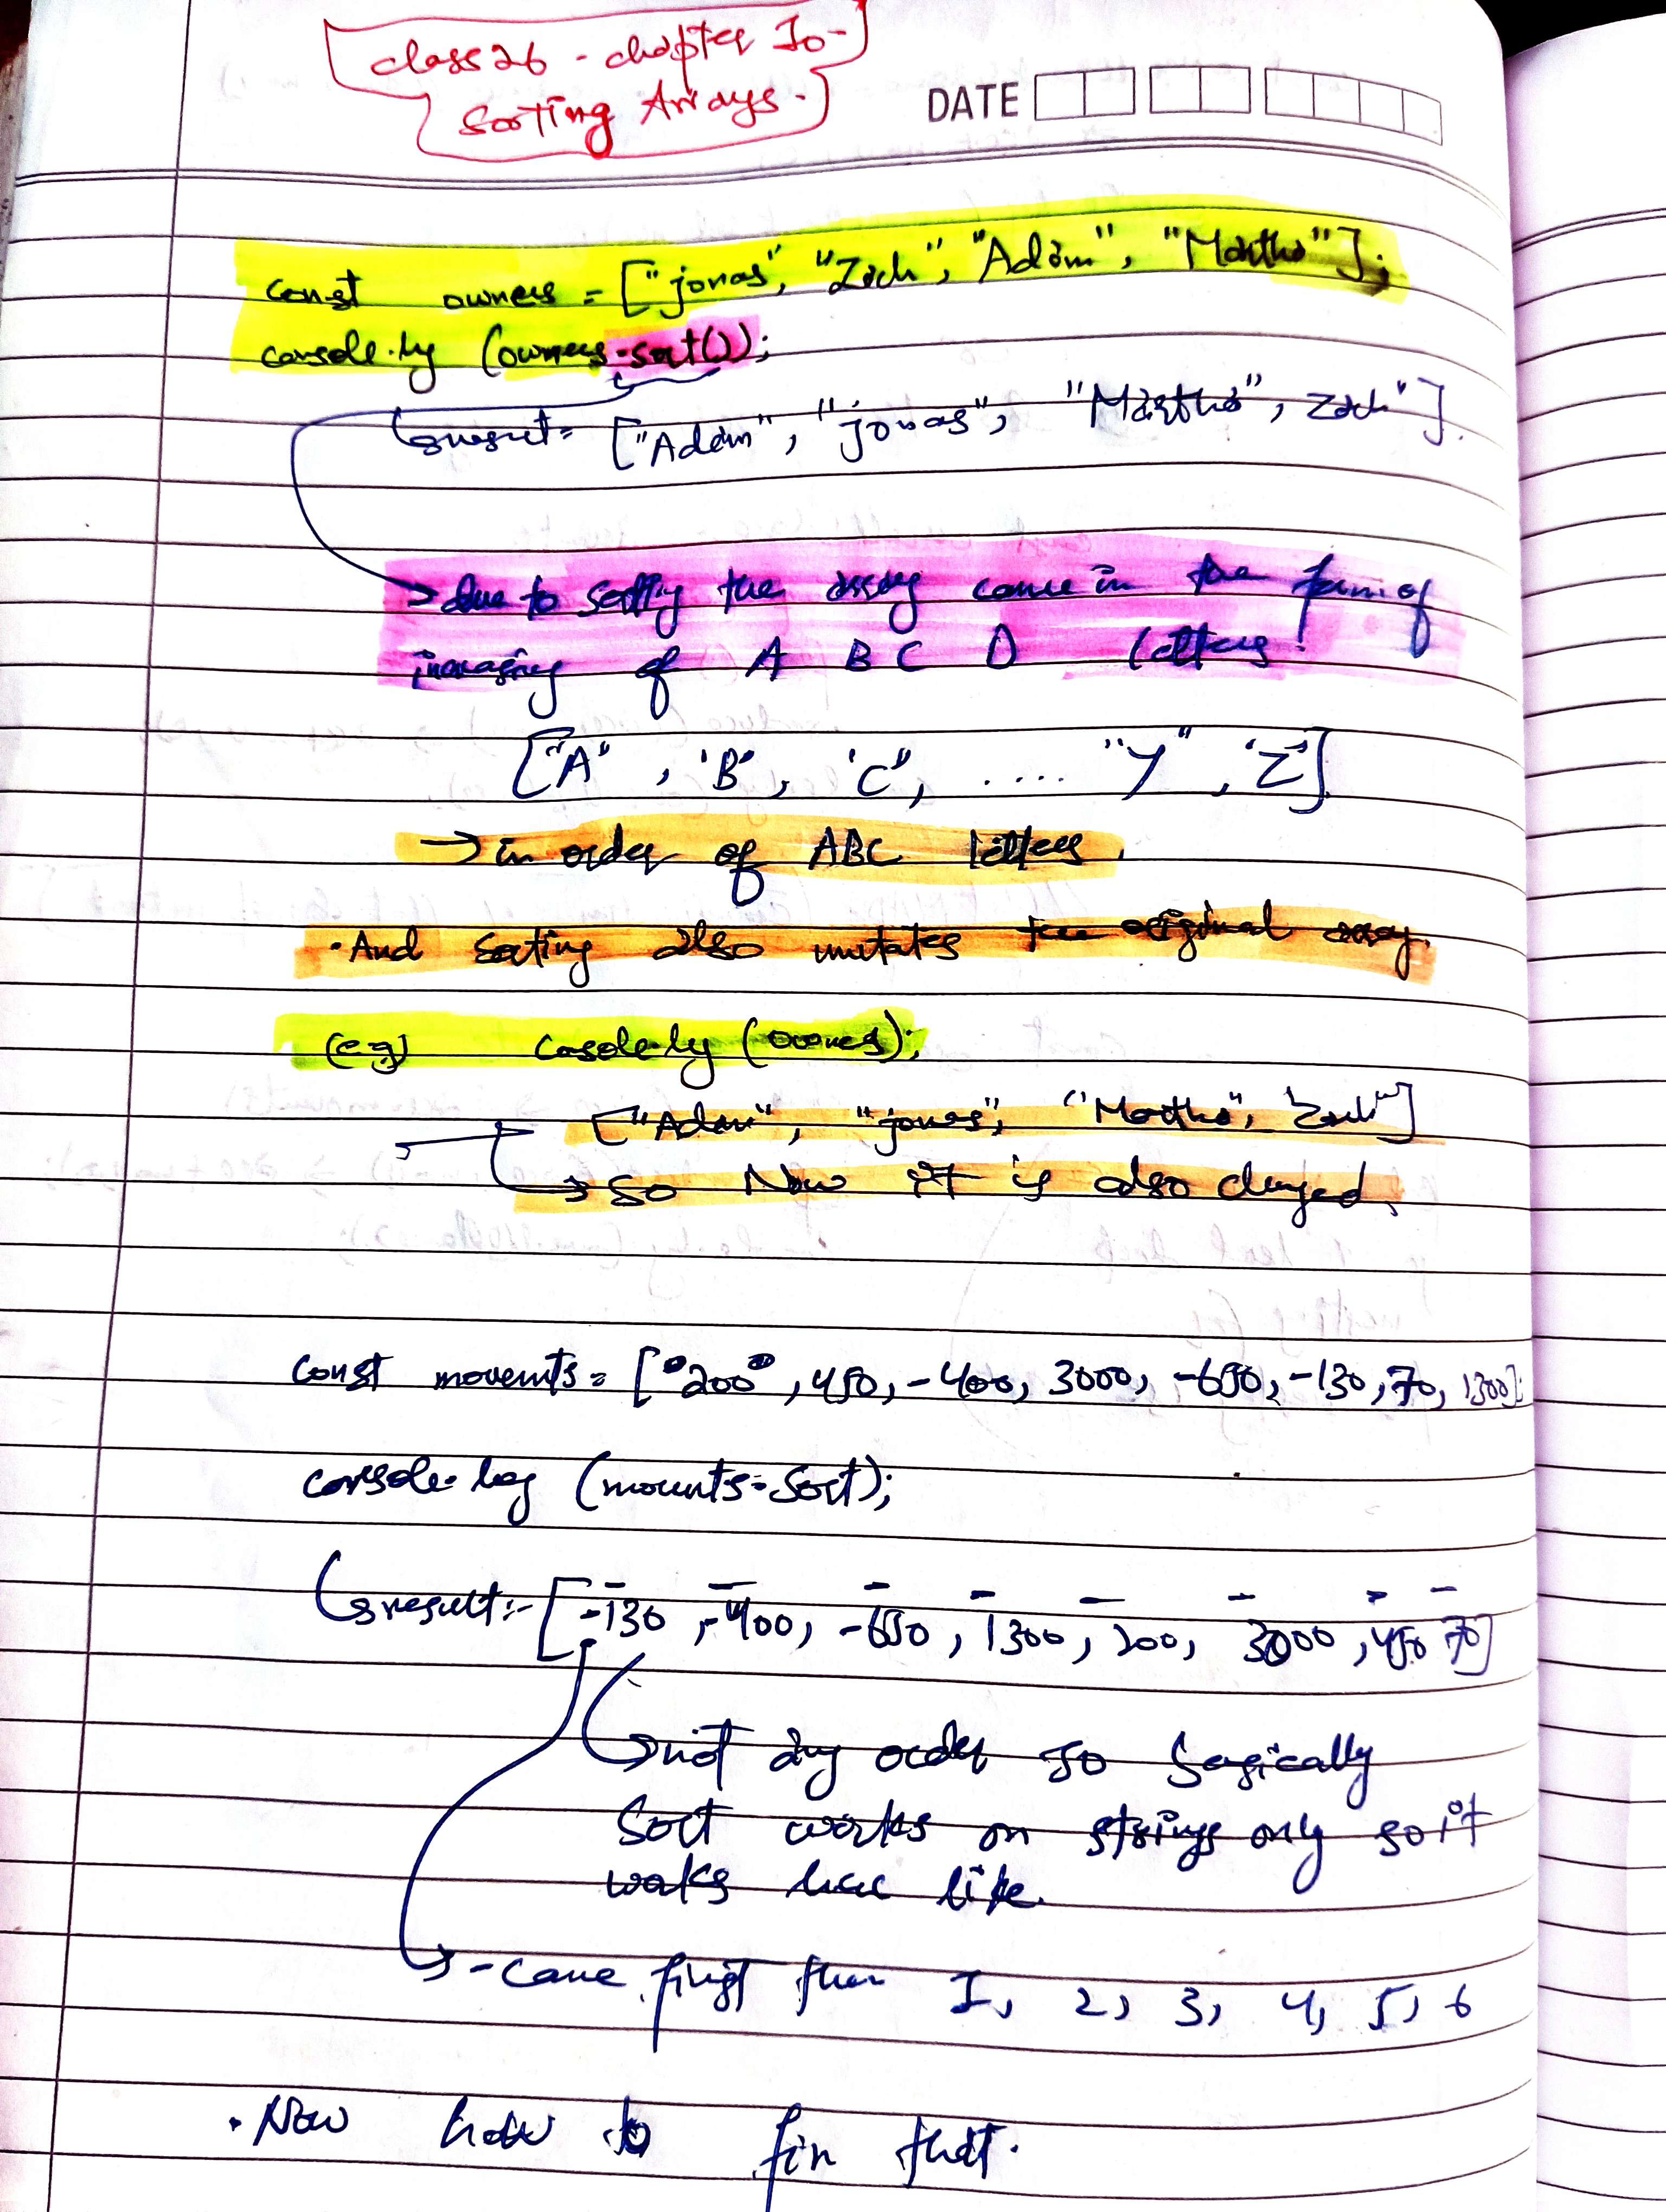 class 26 - chapter 10 -
Sorting Arrays.
DATE
const owners = ["jonas", "Zach", "Adam", "Martha"];
console.log (owners.sort());
result = ["Adam", "jonas", "Martha", Zach"].
→ due to sorting the array come in the form of
increasing of A B C D letters!
["A", 'B', 'C", .... "Y", 'Z']
→ in order of ABC letters.
• And sorting also mutates the original array.
(e.g) console.log (owners);
["Adam", "jonas", "Martha", 'Zach"]
→ so Now it is also changed.
const movemts = ["200", 450, -400, 3000, -650, -130, 70, 1300];
console.log (movemts.sort);
result:- [-130, -400, -650, 1300, 200, 3000, 450 70]
→ not any order so basically
Sort works on strings only so it
works here like
→ - came first then 1, 2, 3, 4, 5, 6
• Now how to fix that.